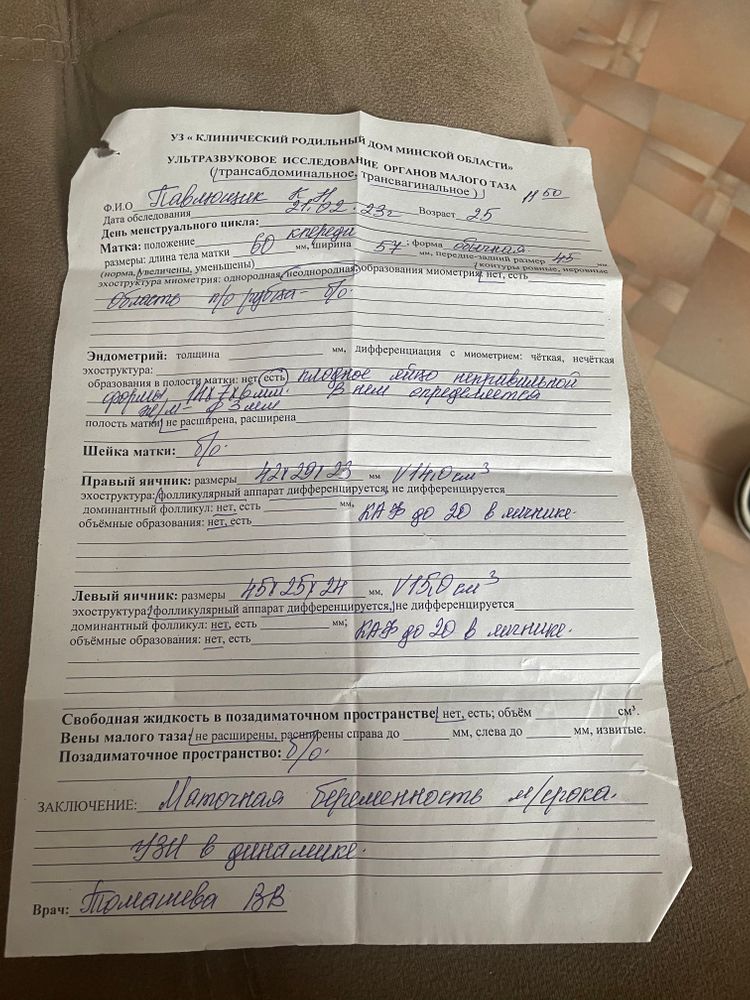 УЗ « КЛИНИЧЕСКИЙ РОДИЛЬНЫЙ ДОМ МИНСКОЙ ОБЛАСТИ»
УЛЬТРАЗВУКОВОЕ ИССЛЕДОВАНИЕ ОРГАНОВ МАЛОГО ТАЗА
(трансабдоминальное, трансвагинальное)
Ф.И.О Павлющик К Н
Дата обследования 21.02.23г Возраст 25
День менструального цикла:
Матка: положение кпереди ; форма обычная
размеры: длина тела матки 60 мм, ширина 57 мм, передне-задний размер 45 мм
(норма, увеличены, уменьшены) контуры ровные, неровные
эхоструктура миометрия: однородная, неоднородная, образования миометрия: нет, есть
Область п/о рубца - б/о.
Эндометрий: толщина мм, дифференциация с миометрием: чёткая, нечёткая
эхоструктура:
образования в полости матки: нет, есть плодное яйцо неправильной
формы 14х7х6мм. В нем определяется
ж/м - ф 3 мм
полость матки: не расширена, расширена
Шейка матки: б/о.
Правый яичник: размеры 42х29х23 мм V14,0 см³
эхоструктура: фолликулярный аппарат дифференцируется, не дифференцируется
доминантный фолликул: нет, есть мм, КАФ до 20 в яичнике.
объёмные образования: нет, есть
Левый яичник: размеры 45х25х24 мм. V15,0 см³
эхоструктура: фолликулярный аппарат дифференцируется, не дифференцируется
доминантный фолликул: нет, есть мм; КАФ до 20 в яичнике.
объёмные образования: нет, есть
Свободная жидкость в позадиматочном пространстве: нет, есть; объём см³.
Вены малого таза: не расширены, расширены справа до мм, слева до мм, извитые.
Позадиматочное пространство: б/о.
ЗАКЛЮЧЕНИЕ: Маточная беременность м/срока.
УЗИ в динамике.
Врач: Томашева ВВ